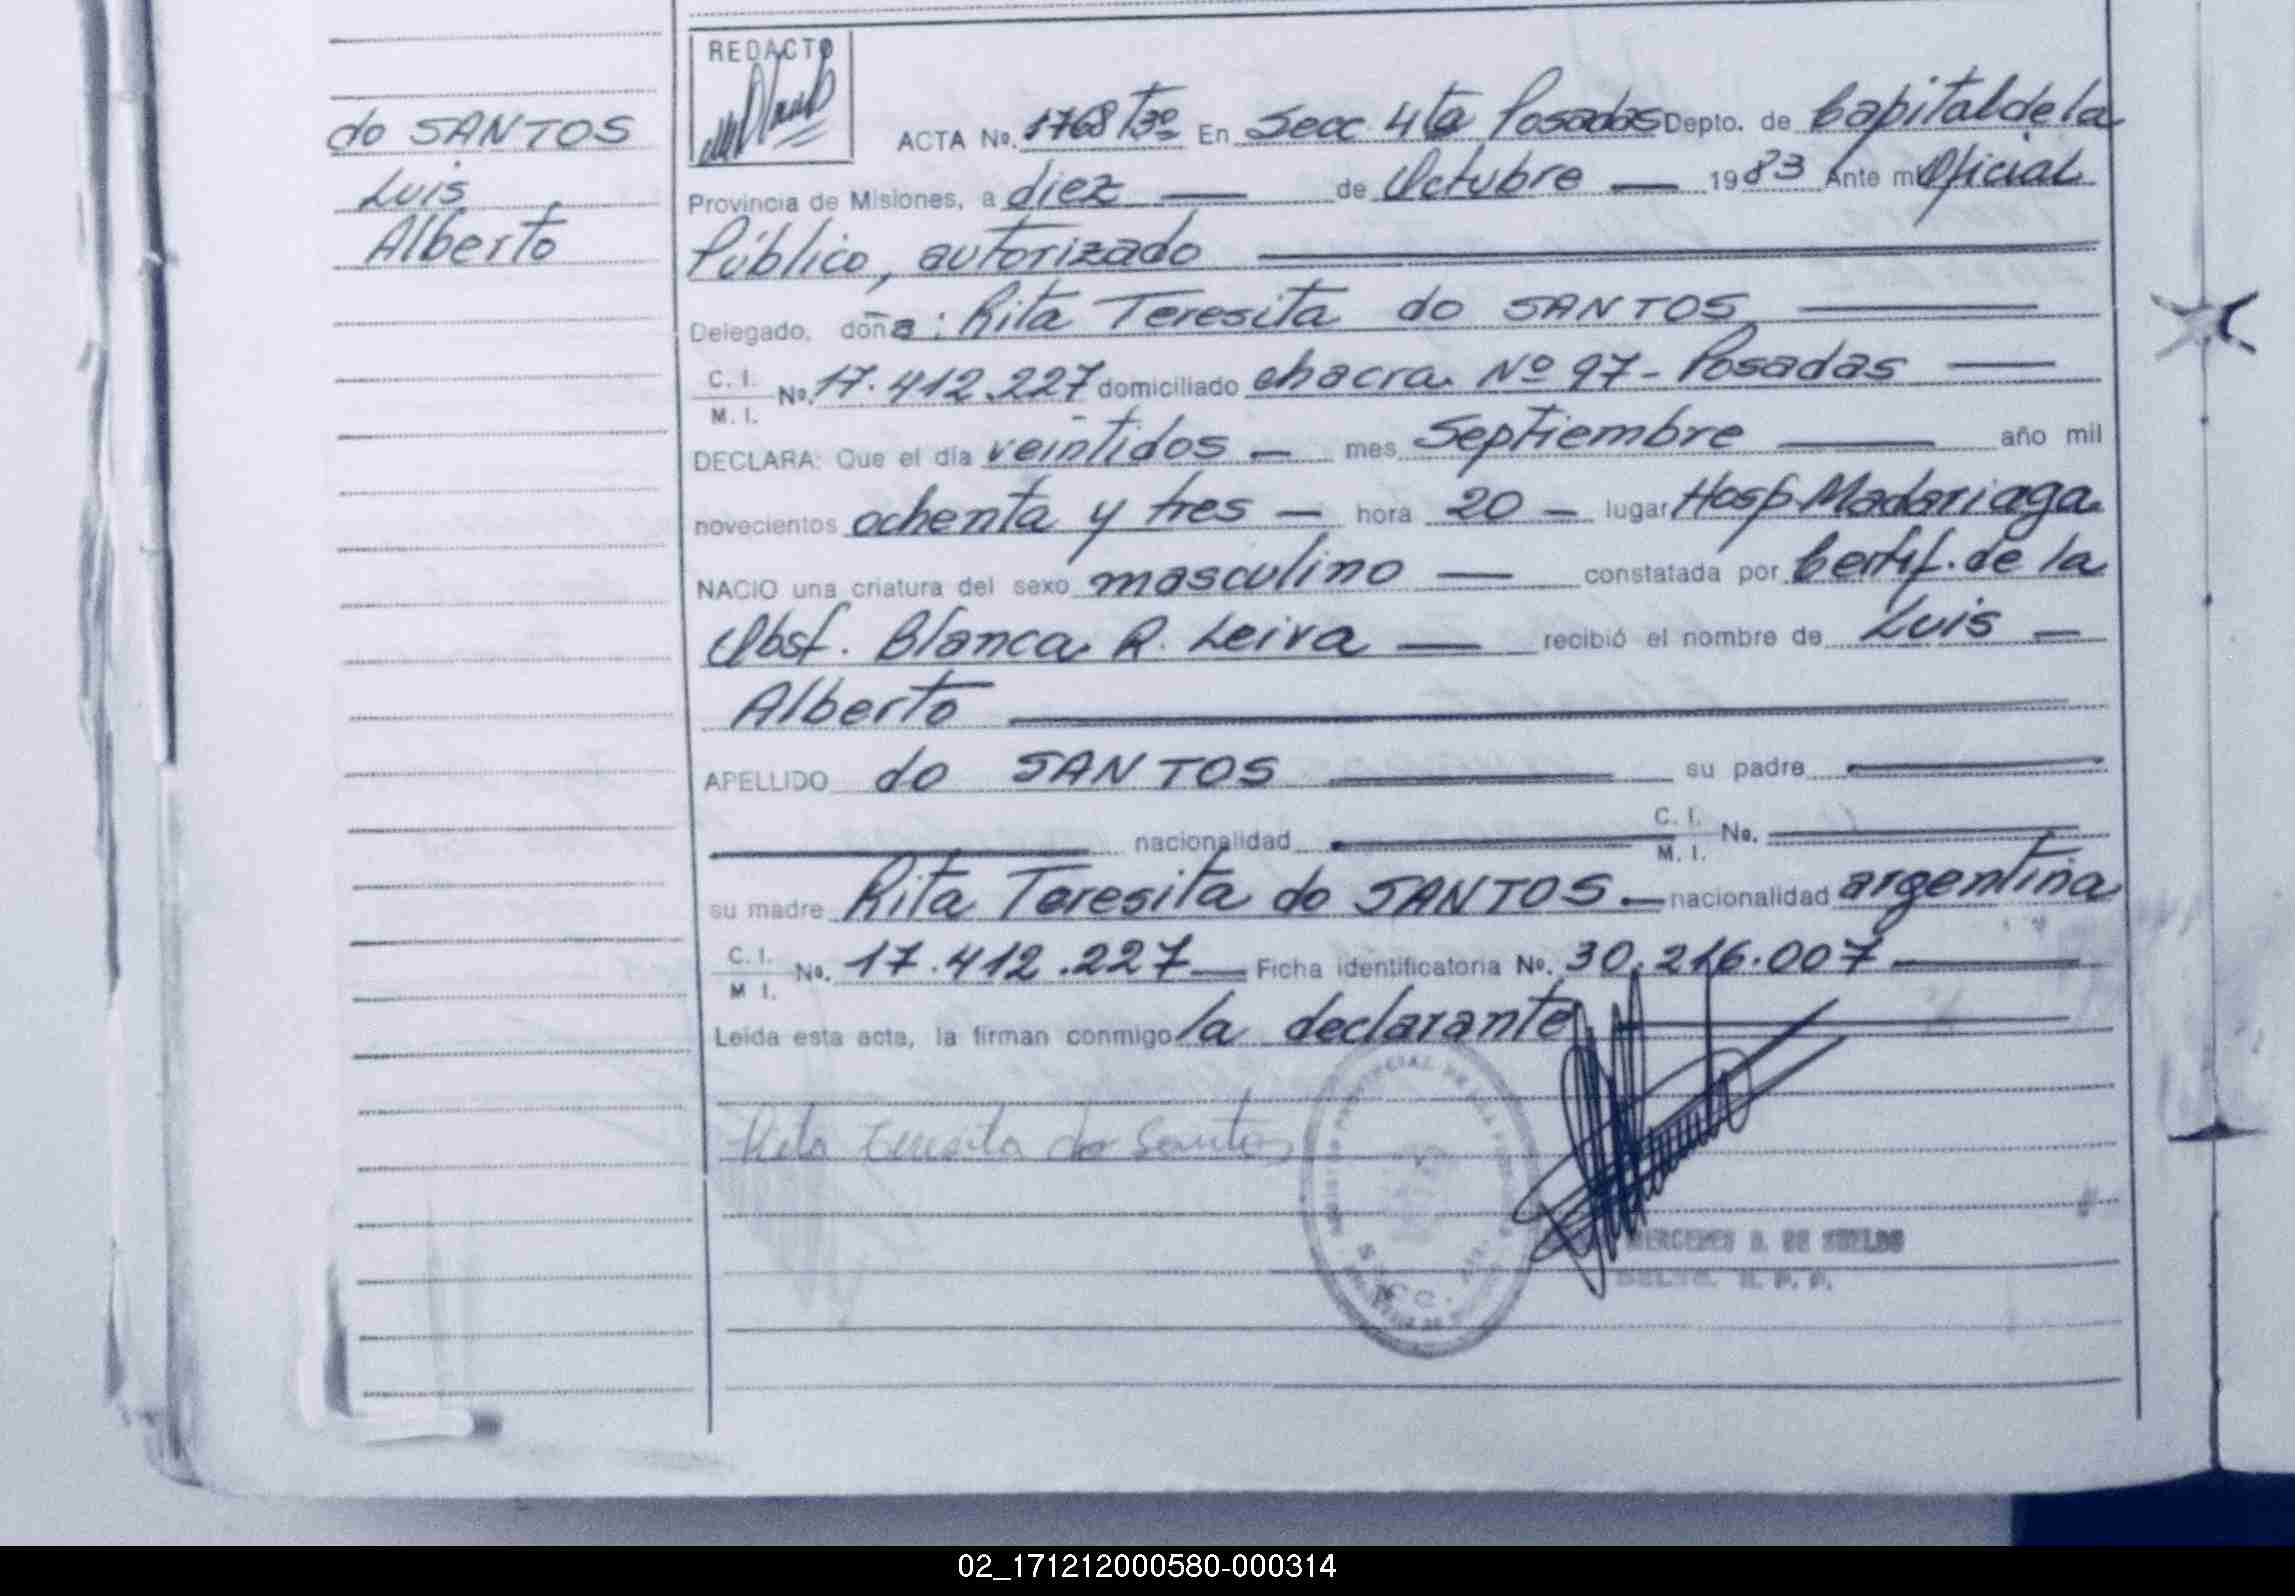 REDACTO
do SANTOS
Luis
Alberto
ACTA No. 1768 Tº3º En Secc 4ta Posadas Depto. de Capital de la
Provincia de Misiones, a diez — de Octubre — 1983 Ante mi Oficial
Público, autorizado
Delegado, doña: Rita Teresita do SANTOS
C. I. M. I. No. 17.412.227 domiciliado chacra Nº 97 - Posadas —
DECLARA: Que el día veintidos — mes Septiembre — año mil
novecientos ochenta y tres — hora 20 — lugar Hosp. Madariaga
NACIO una criatura del sexo masculino — constatada por Certif. de la
Obst. Blanca R. Leiva — recibió el nombre de Luis —
Alberto
APELLIDO do SANTOS — su padre —
nacionalidad — C. I. M. I. No. —
su madre Rita Teresita do SANTOS — nacionalidad argentina
C. I. M I. No. 17.412.227 — Ficha identificatoria No. 30.216.007 —
Leída esta acta, la firman conmigo la declarante
Rita Teresita do Santos
MERCEDES B. DE SUELDO
02_171212000580-000314